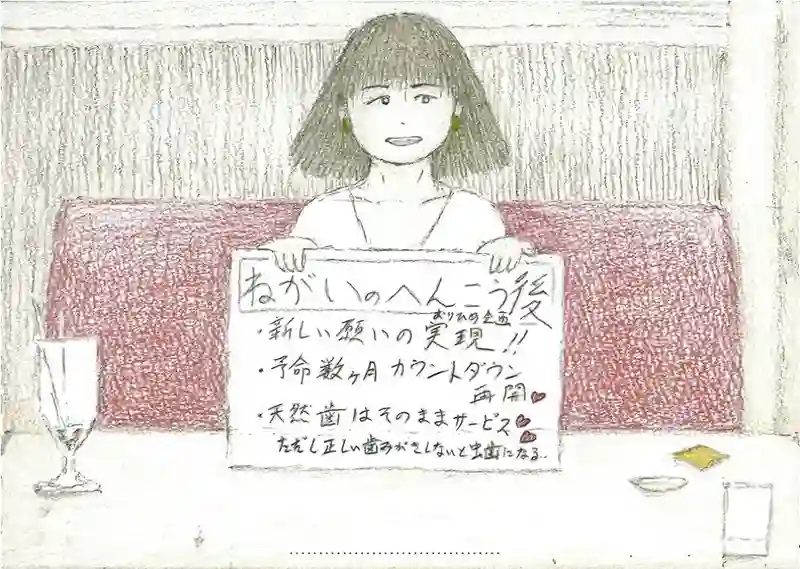 ねがいのへんこう後
・新しい願いの実現!!
おりひめ企画
・予命数ヶ月カウントダウン
再開♥
・天然歯はそのままサービス♥
ただし正しい歯みがきしないと虫歯になる.